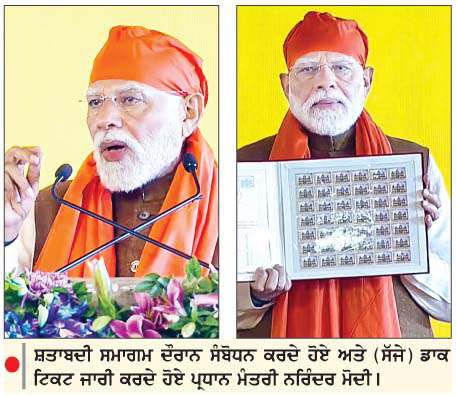 ਸ਼ਤਾਬਦੀ ਸਮਾਗਮ ਦੌਰਾਨ ਸੰਬੋਧਨ ਕਰਦੇ ਹੋਏ ਅਤੇ (ਸੱਜੇ) ਡਾਕ
ਟਿਕਟ ਜਾਰੀ ਕਰਦੇ ਹੋਏ ਪ੍ਰਧਾਨ ਮੰਤਰੀ ਨਰਿੰਦਰ ਮੋਦੀ।